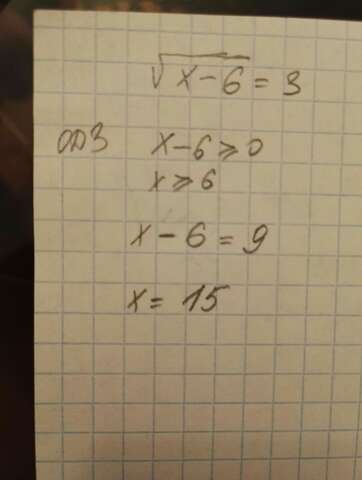 √x-6 = 3
ОДЗ x-6⩾0
x⩾6
x-6=9
x= 15